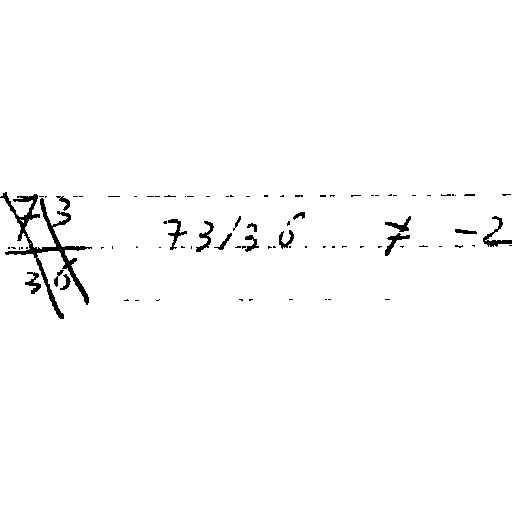 73
36
73/36 ≠ -2